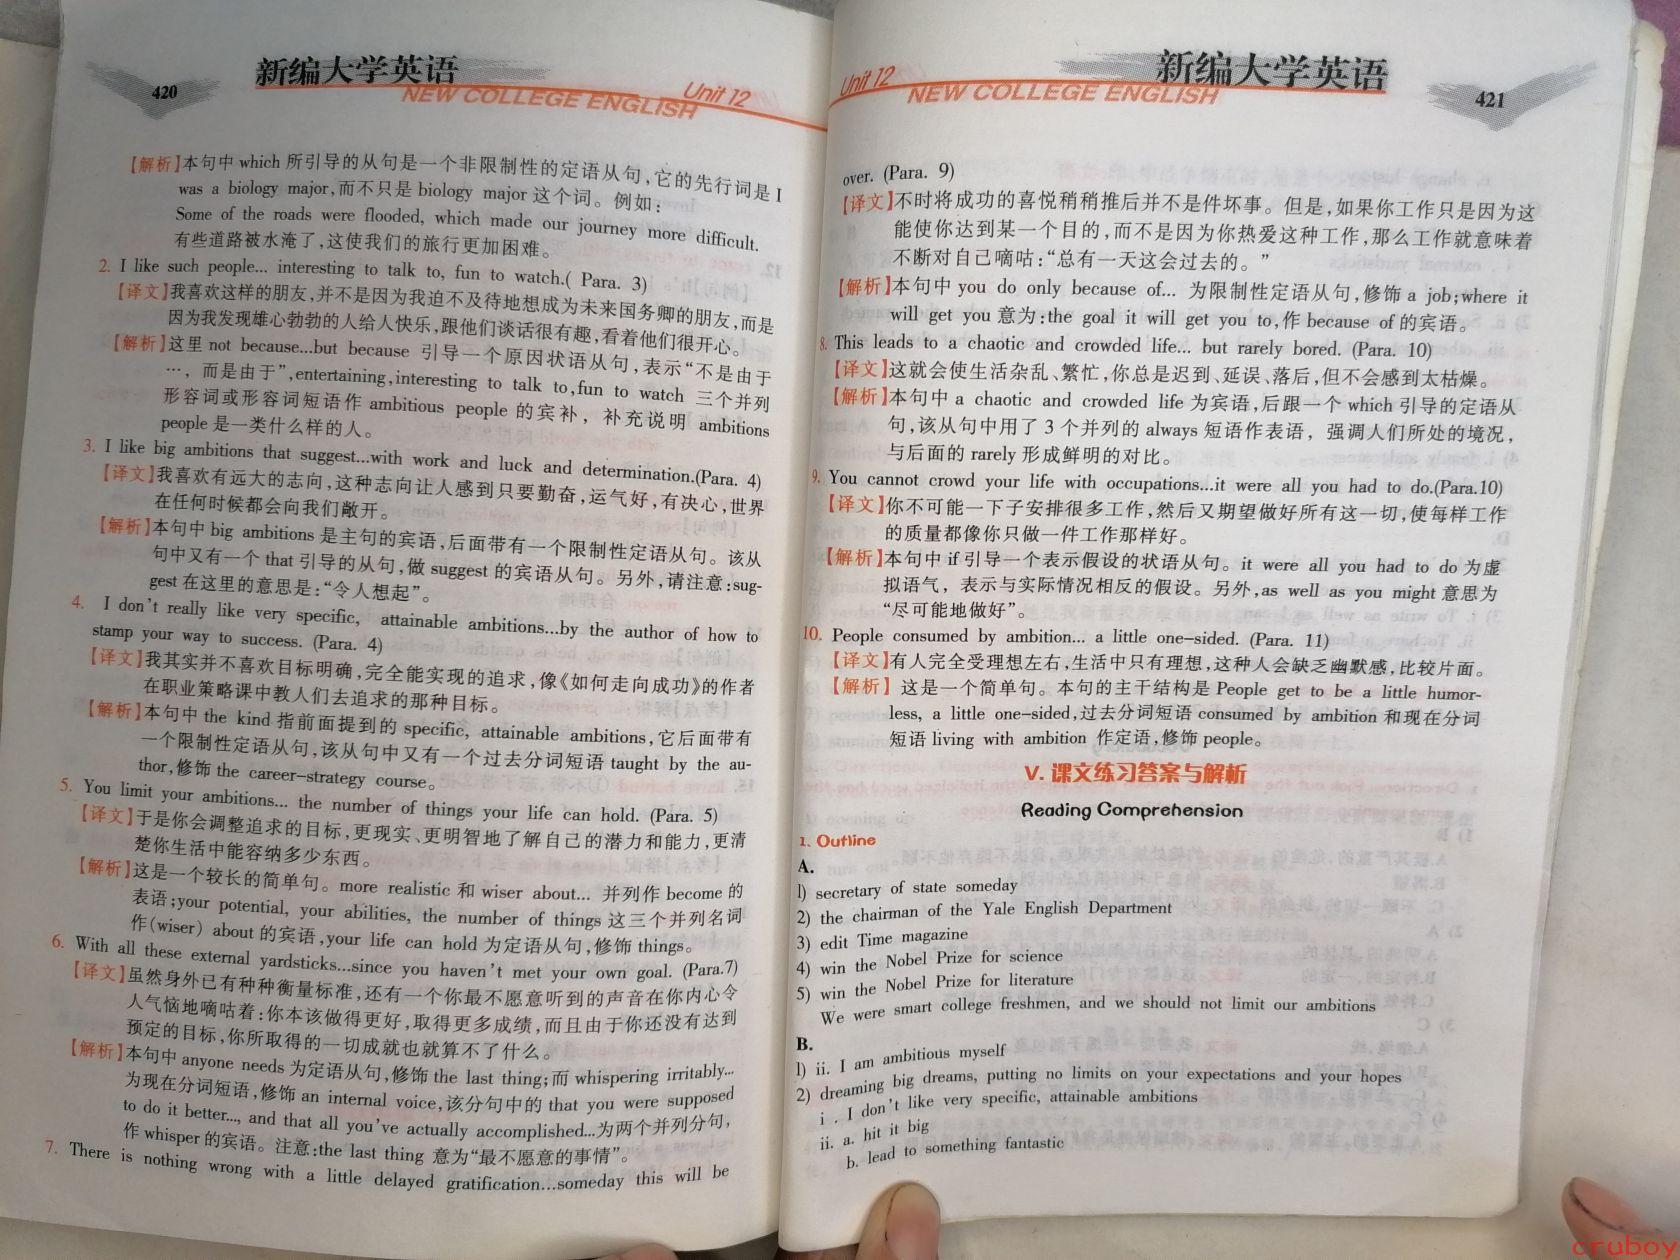 420
新编大学英语
NEW COLLEGE ENGLISH
Unit 12
【解析】本句中 which 所引导的从句是一个非限制性的定语从句,它的先行词是 I
was a biology major,而不只是 biology major 这个词。例如:
Some of the roads were flooded, which made our journey more difficult.
有些道路被水淹了,这使我们的旅行更加困难。
2. I like such people... interesting to talk to, fun to watch.( Para. 3)
【译文】我喜欢这样的朋友,并不是因为我迫不及待地想成为未来国务卿的朋友,而是
因为我发现雄心勃勃的人给人快乐,跟他们谈话很有趣,看着他们很开心。
【解析】这里 not because...but because 引导一个原因状语从句,表示“不是由于
…，而是由于”,entertaining,interesting to talk to,fun to watch 三个并列
形容词或形容词短语作 ambitious people 的宾补，补充说明 ambitions
people 是一类什么样的人。
3. I like big ambitions that suggest...with work and luck and determination.(Para. 4)
【译文】我喜欢有远大的志向,这种志向让人感到只要勤奋,运气好,有决心,世界
在任何时候都会向我们敞开。
【解析】本句中 big ambitions 是主句的宾语,后面带有一个限制性定语从句。该从
句中又有一个 that 引导的从句,做 suggest 的宾语从句。另外,请注意:sug-
gest 在这里的意思是:“令人想起”。
4. I don't really like very specific, attainable ambitions...by the author of how to
stamp your way to success. (Para. 4)
【译文】我其实并不喜欢目标明确,完全能实现的追求,像《如何走向成功》的作者
在职业策略课中教人们去追求的那种目标。
【解析】本句中 the kind 指前面提到的 specific, attainable ambitions,它后面带有
一个限制性定语从句,该从句中又有一个过去分词短语 taught by the au-
thor,修饰 the career-strategy course。
5. You limit your ambitions... the number of things your life can hold. (Para. 5)
【译文】于是你会调整追求的目标,更现实、更明智地了解自己的潜力和能力,更清
楚你生活中能容纳多少东西。
【解析】这是一个较长的简单句。more realistic 和 wiser about... 并列作 become 的
表语;your potential, your abilities, the number of things 这三个并列名词
作(wiser) about 的宾语,your life can hold 为定语从句,修饰 things。
6. With all these external yardsticks...since you haven't met your own goal. (Para.7)
【译文】虽然身外已有种种衡量标准,还有一个你最不愿意听到的声音在你内心令
人气恼地嘀咕着:你本该做得更好,取得更多成绩,而且由于你还没有达到
预定的目标,你所取得的一切成就也就算不了什么。
【解析】本句中 anyone needs 为定语从句,修饰 the last thing;而 whispering irritably...
为现在分词短语,修饰 an internal voice,该分句中的 that you were supposed
to do it better..., and that all you've actually accomplished...为两个并列分句,
作 whisper 的宾语。注意:the last thing 意为“最不愿意的事情”。
7. There is nothing wrong with a little delayed gratification...someday this will be
Unit 12
新编大学英语
NEW COLLEGE ENGLISH
421
over. (Para. 9)
【译文】不时将成功的喜悦稍稍推后并不是件坏事。但是,如果你工作只是因为这
能使你达到某一个目的,而不是因为你热爱这种工作,那么工作就意味着
不断对自己嘀咕:“总有一天这会过去的。”
【解析】本句中 you do only because of... 为限制性定语从句,修饰 a job;where it
will get you 意为:the goal it will get you to,作 because of 的宾语。
8. This leads to a chaotic and crowded life... but rarely bored. (Para. 10)
【译文】这就会使生活杂乱、繁忙,你总是迟到、延误、落后,但不会感到太枯燥。
【解析】本句中 a chaotic and crowded life 为宾语,后跟一个 which 引导的定语从
句,该从句中用了 3 个并列的 always 短语作表语，强调人们所处的境况，
与后面的 rarely 形成鲜明的对比。
9. You cannot crowd your life with occupations...it were all you had to do.(Para.10)
【译文】你不可能一下子安排很多工作,然后又期望做好所有这一切,使每样工作
的质量都像你只做一件工作那样好。
【解析】本句中 if 引导一个表示假设的状语从句。it were all you had to do 为虚
拟语气，表示与实际情况相反的假设。另外,as well as you might 意思为
“尽可能地做好”。
10. People consumed by ambition... a little one-sided. (Para. 11)
【译文】有人完全受理想左右,生活中只有理想,这种人会缺乏幽默感,比较片面。
【解析】这是一个简单句。本句的主干结构是 People get to be a little humor-
less, a little one-sided,过去分词短语 consumed by ambition 和现在分词
短语 living with ambition 作定语,修饰 people。
V. 课文练习答案与解析
Reading Comprehension
1. Outline
A.
1) secretary of state someday
2) the chairman of the Yale English Department
3) edit Time magazine
4) win the Nobel Prize for science
5) win the Nobel Prize for literature
We were smart college freshmen, and we should not limit our ambitions
B.
1) ii. I am ambitious myself
2) dreaming big dreams, putting no limits on your expectations and your hopes
i . I don't like very specific, attainable ambitions
ii. a. hit it big
b. lead to something fantastic
cruboy